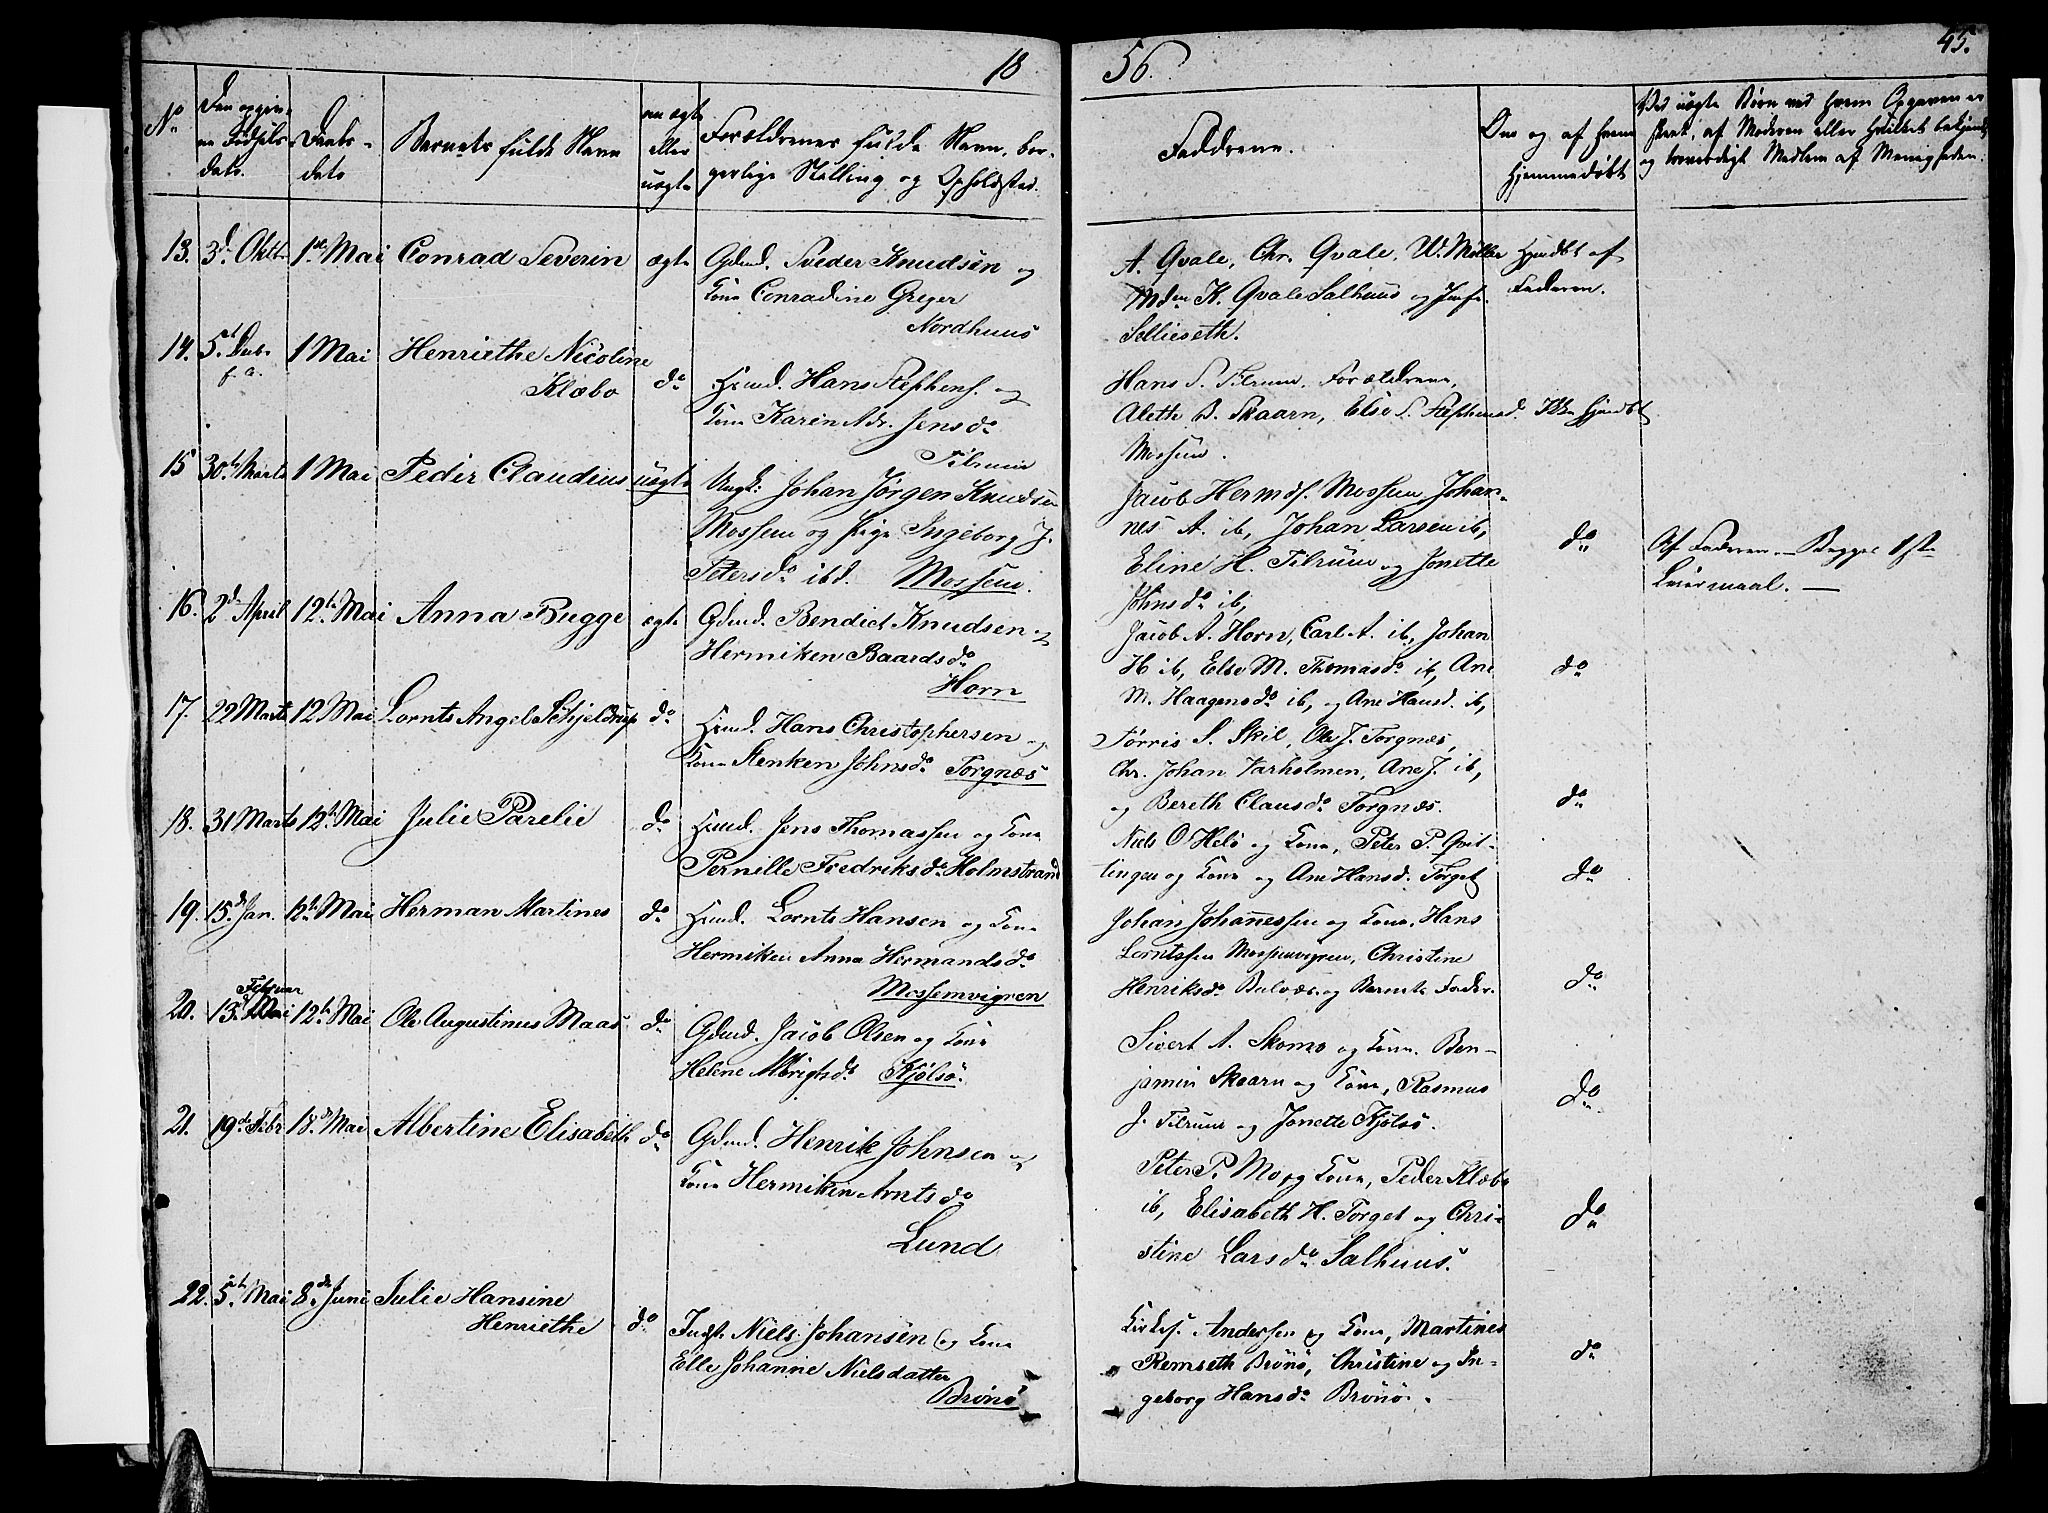 18
56.
45.
No
Den opgiv-
ne Fødsels
dato.
Daabs-
dato
Barnets fulde Navn
om ægte
eller
uægte
Forældrenes fulde Navn, bor-
gerlige Stilling og Opholdssted.
Fadderne.
Om og af hvem
hjemmedøbt
Ved uægte Børn ved hvem Opgaven er
skeet, af Moderen eller hvilket bekjendt
og troværdigt Medlem af Menigheden.
13. 3d. Oktr 1ste Mai Conrad Severin ægte Gdmd. Sveder Knudsen og
Kone Conradine Greger
Nordhuus
A. Qvale, Chr. Qvale, W. Møller
Mdm K. Qvale Salhuus og Jmf.
Sellieseth.
Hjmdbt af
Faderen.
14. 5t Decb. 1 Mai Henriethe Nicoline
f. a.
Klæbo do Huusmd. Hans Stephens. og
Kone Karen Adr. Jens do
Tilrum
Hans S. Tilrum, Forældrene,
Aleth B. Skaarn, Else S. Stephensd.
Mossem.
Ikke hjmdbt
15 30te Marts 1 Mai Peder Claudius uægte Ungk: Johan Jørgen Knudsen
Mossem og Pige Ingeborg J.
Petersdo ibd. Mossem.
Jacob Hermds. Mossem Johan-
nes A. ib, Johan Larsen ib,
Eline H. Tilrum og Jonette
Johnsdo ib,
do
Af Faderen. — Begges 1ste
Leiermaal. —
16. 2d April 12te Mai Anna Bugge ægte Gdmd. Bendict Knudsen og
Hermiken Baardsdo
Horn
Jacob A. Horn, Carl A. ib, Johan
H ib, Else M. Thomasdo ib, Ane
M. Haagensdo ib, og Ane Hansd. ib,
do
17. 22 Marts 12 Mai Lornts Angel Schjeldrup do Huusmd. Hans Christophersen og
Kone Stenken Johnsdo Torgnæs
Tørris S. Skil, Ole J. Torgnæs,
Chr. Johan Varholmen, Ane J. ib,
og Bereth Clausdo Torgnæs.
do
18. 31 Marts 12te Mai Julie Parelie do Huusmd. Jens Thomassen og Kone
Pernille Fredriksdo Holmstrand
Niels O Helø og Kone, Peter P. Qvit-
tingen og Kone og Ane Hansd. Torget
do
19. 15d. Jan. 12te Mai Herman Martines do Huusmd. Lornts Hansen og Kone
Hermiken Anna Hermandsdo
Mossemvigren
Johan Johannessen og Kone, Hans
Lorntssen Mossemvigren, Christine
Henriksdo Bulvær og Barnets Fader.
do
Februar
20. 13d. Mai 12te Mai Ole Augustinus Maas do Gdmd. Jacob Olsen og Kone
Helene Albrigtsdo Kjølsø.
Sivert A. Skomo og Kone. Ben-
jamin Skaarn og Kone, Rasmus
J. Tilrum og Jonette Kjølsø.
do
21. 19de Febr 18de Mai Albertine Elisabeth do Gdmd. Henrik Johnsen og
Kone Hermiken Arntsdo
Lund
Peter P. Mo og Kone, Peder Klæbo
ib, Elisabeth H. Torget og Chri-
stine Larsdo Salhuus.
do
22. 5te Mai 8de Juni Julie Hansine
Henriethe do Indst. Niels Johansen og Kone
Elle Johanne Nielsdatter
Brønø
Kirkes. Andersen og Kone, Martines
Remseth Brønø, Christine og In-
geborg Hansdo Brønø.
do